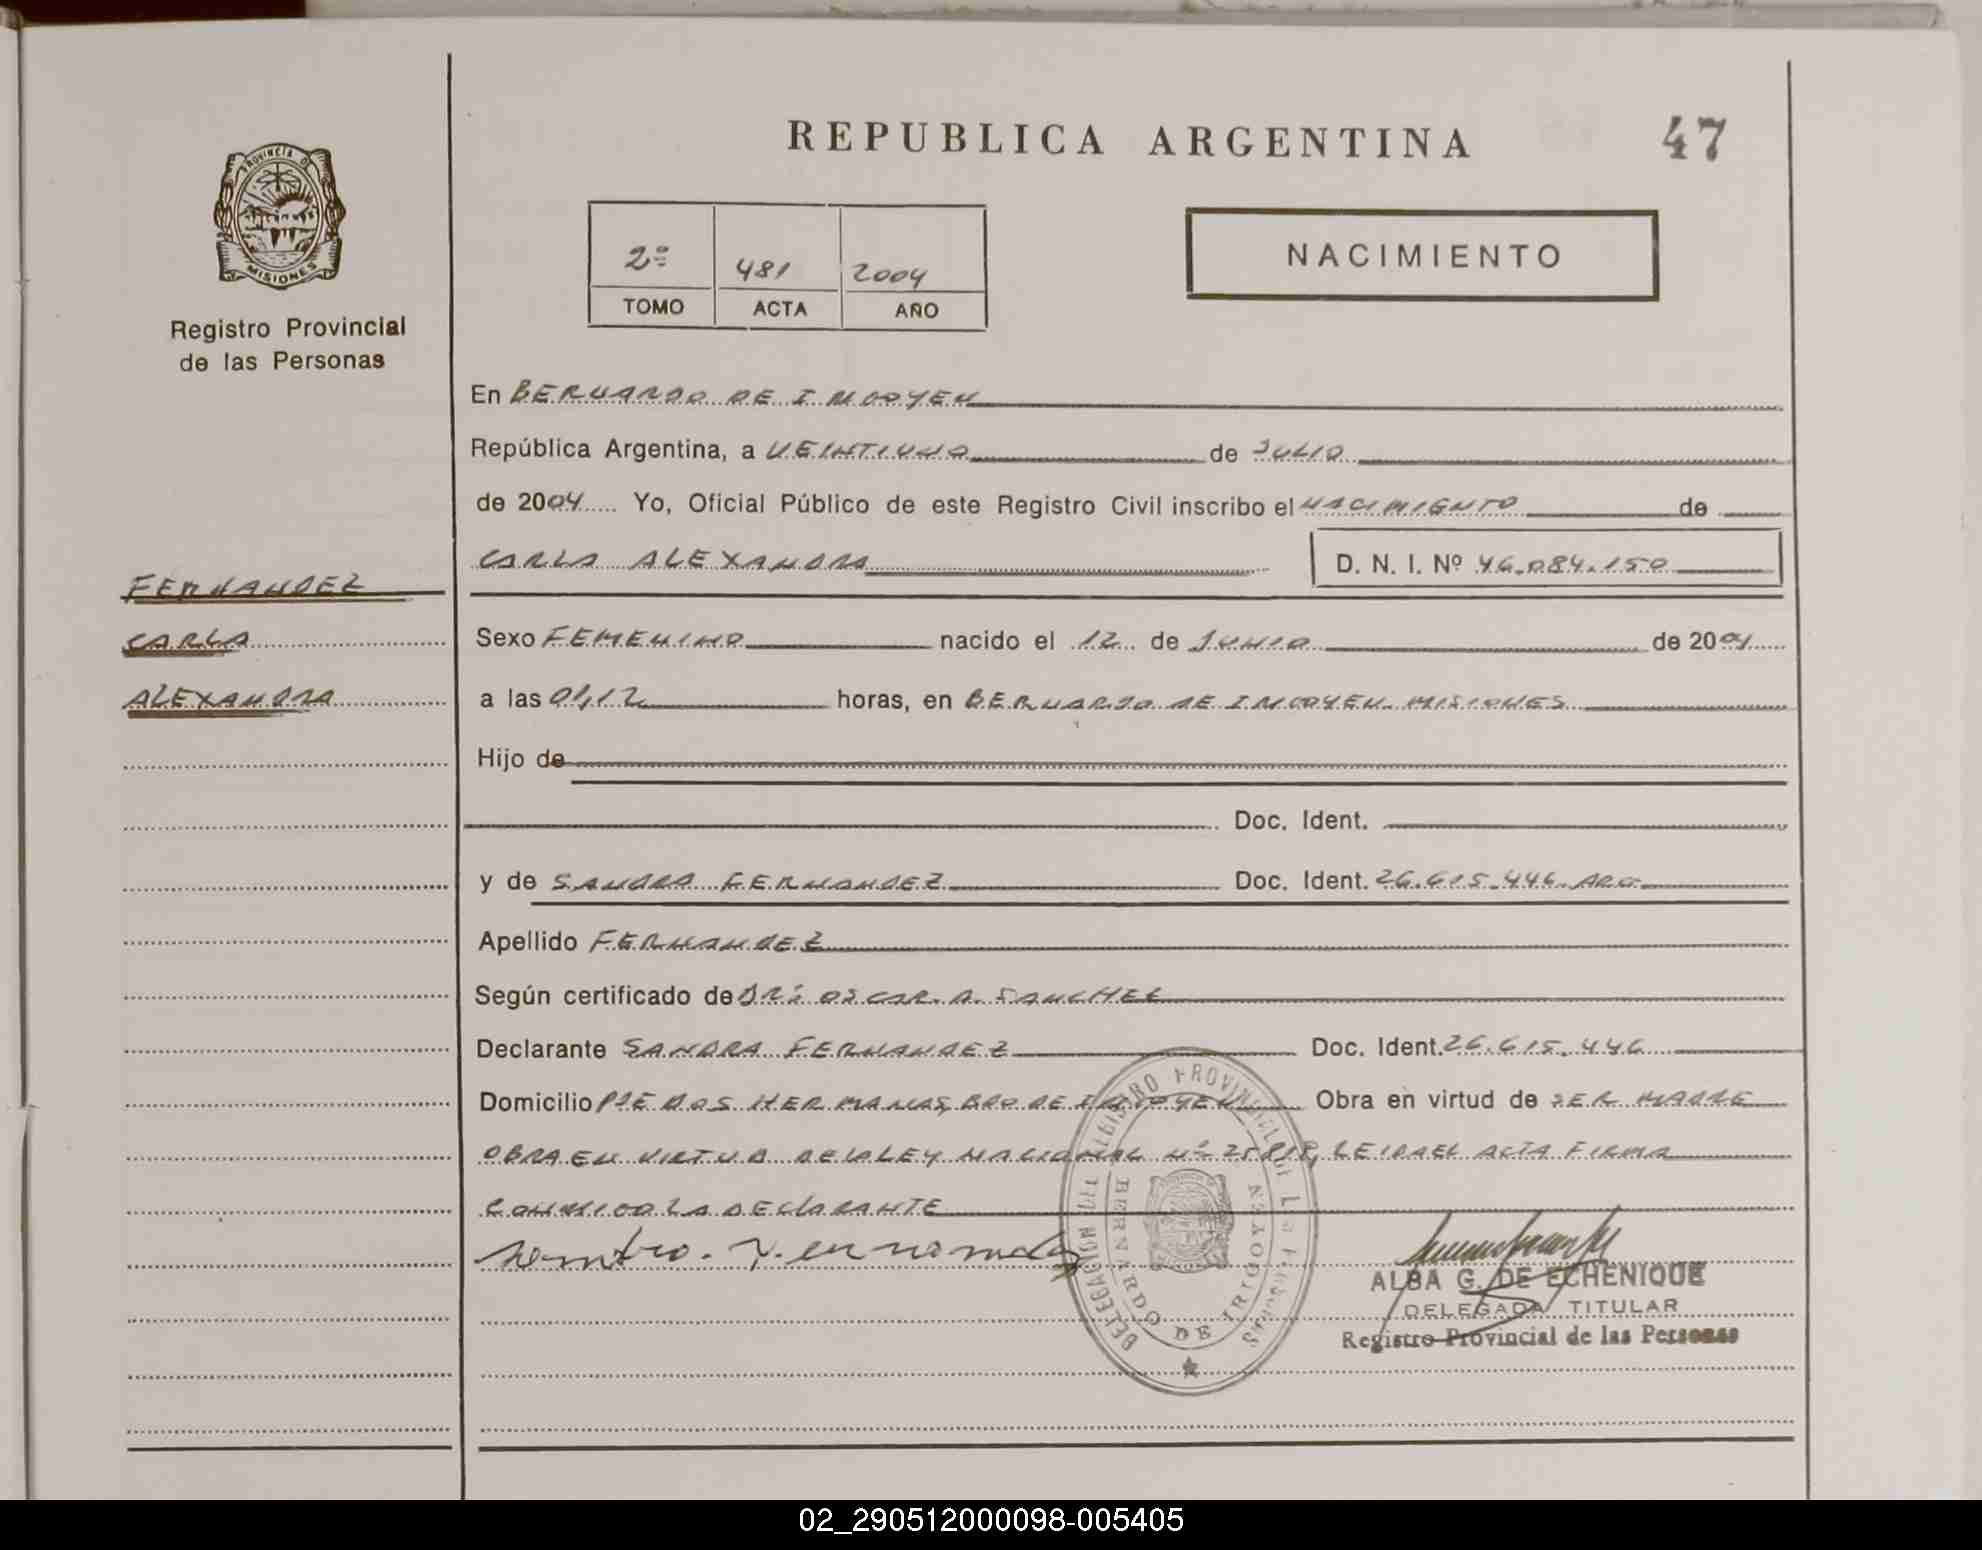 REPUBLICA ARGENTINA
47
PROVINCIA DE
MISIONES
Registro Provincial
de las Personas
2º 481 2004
TOMO ACTA AÑO
NACIMIENTO
En BERNARDO DE IRIGOYEN
República Argentina, a VEINTIUNO de JULIO
de 2004 Yo, Oficial Público de este Registro Civil inscribo el NACIMIENTO de
CARLA ALEXANDRA D. N. I. Nº 46.084.150
FERNANDEZ
CARLA
ALEXANDRA
Sexo FEMENINO nacido el 12 de JUNIO de 2004
a las 01,12 horas, en BERNARDO DE IRIGOYEN MISIONES
Hijo de
Doc. Ident.
y de SANDRA FERNANDEZ Doc. Ident. 26.615.446 ARG.
Apellido FERNANDEZ
Según certificado de DR: OSCAR. A. SANCHEZ
Declarante SANDRA FERNANDEZ Doc. Ident. 26.615.446
Domicilio PJE DOS HERMANAS, BDO DE IRIGOYEN Obra en virtud de SER MADRE
OBRA EN VIRTUD DE LA LEY NACIONAL Nº 25.819, LEIDA EL ACTA FIRMA
CONMIGO LA DECLARANTE
DELEGACION DEL REGISTRO PROVINCIAL DE LAS PERSONAS
BERNARDO DE IRIGOYEN
ALBA G. DE ECHENIQUE
DELEGADA TITULAR
Registro Provincial de las Personas
02_290512000098-005405